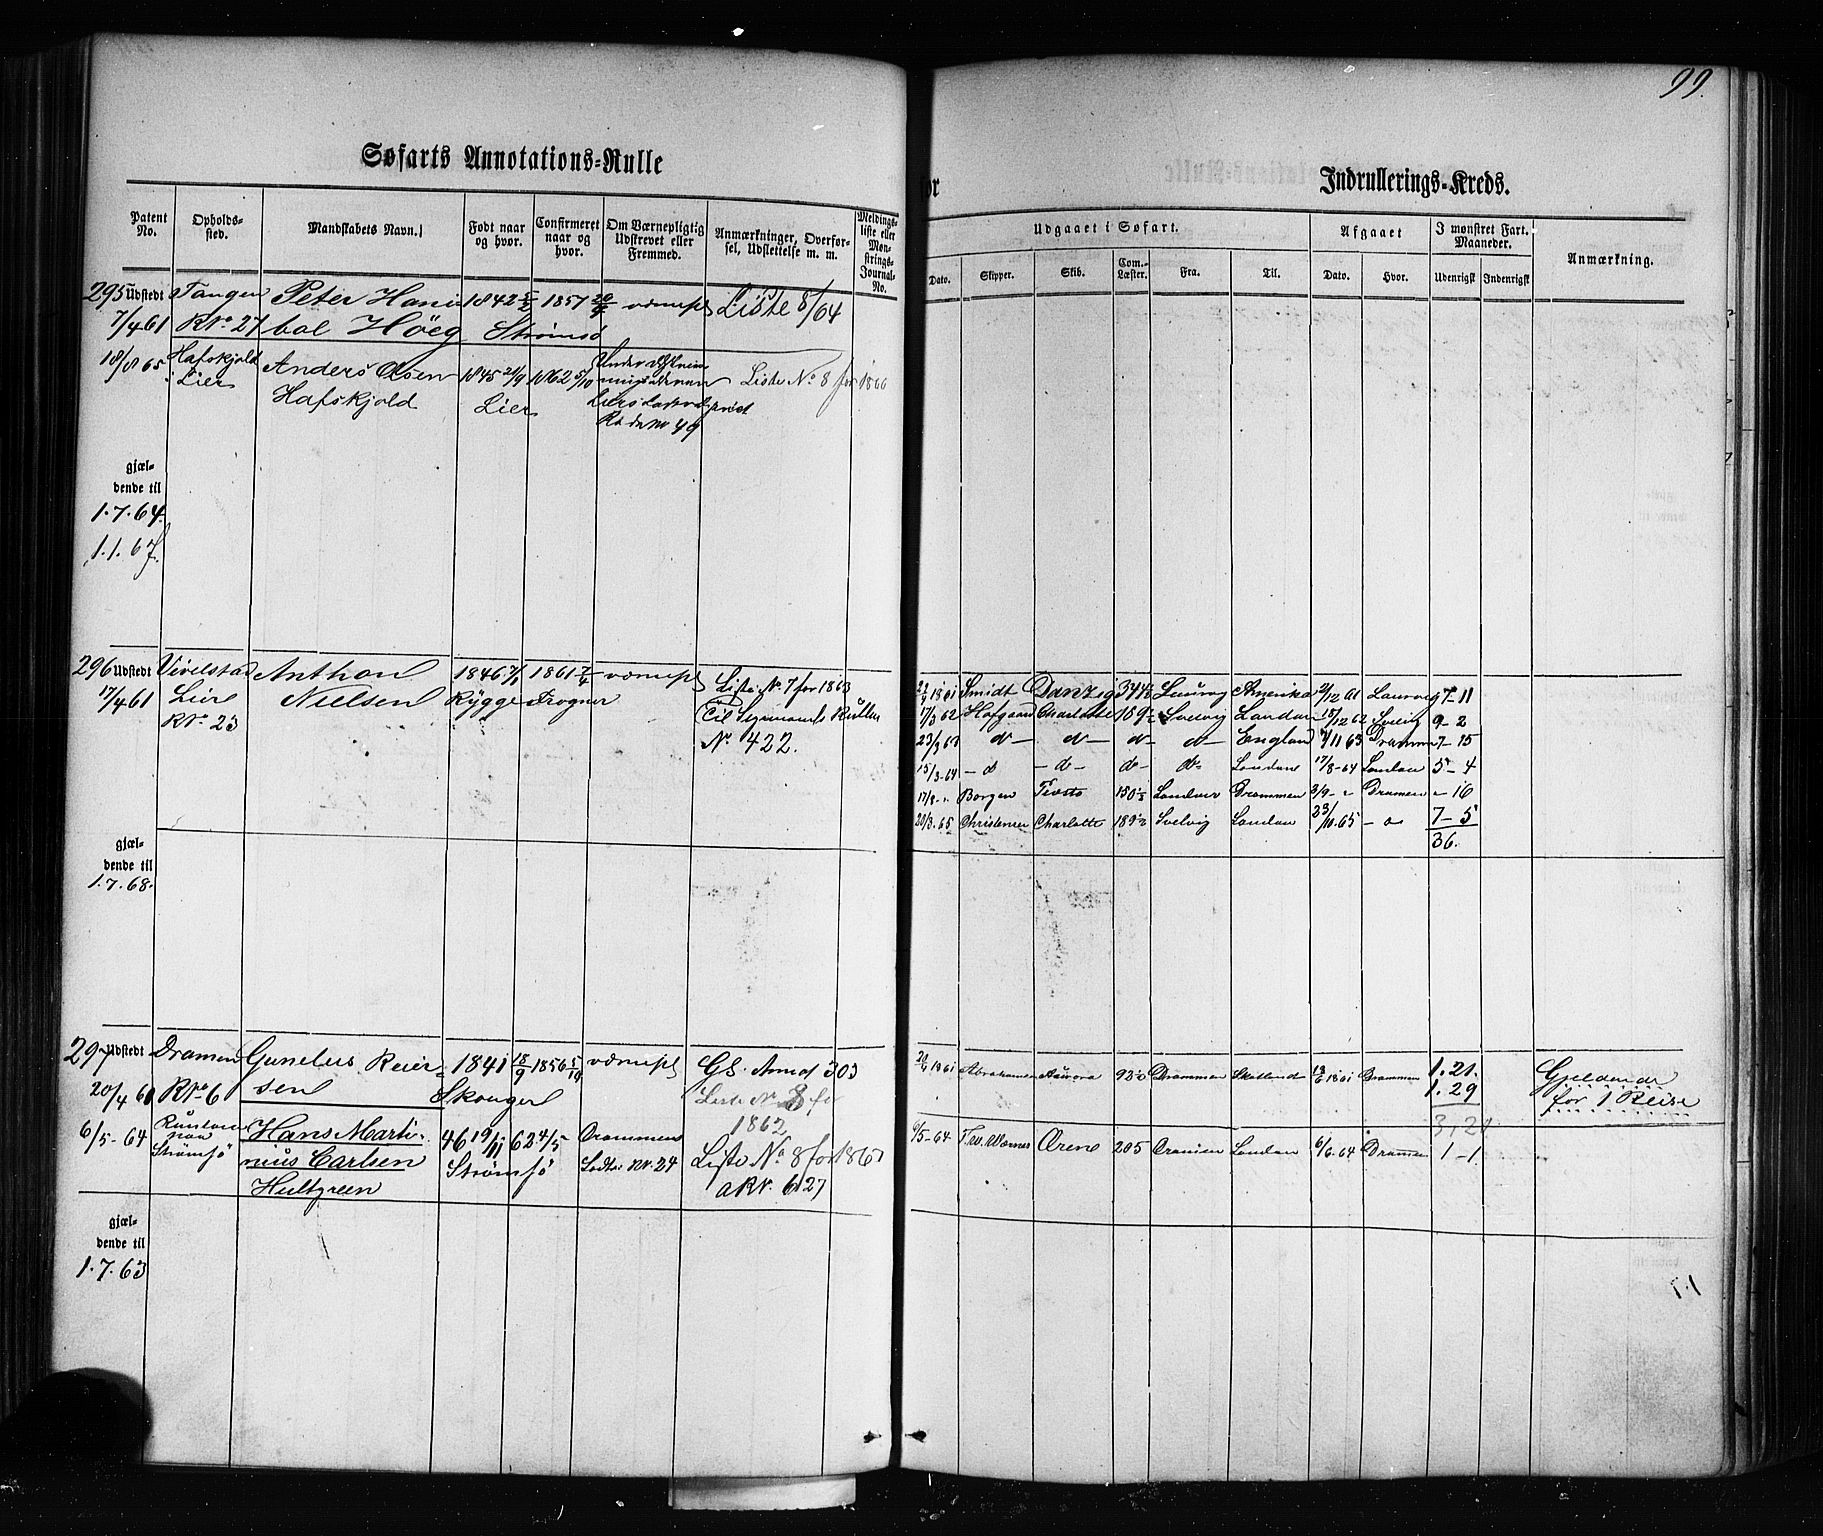 99.
Søfarts Annotations-Rulle
Indrullerings-Kreds.
Patent No.
Opholds-sted.
Mandskabets Navn.
Født naar og hvor.
Confirmeret naar og hvor.
Om Værnepligtig Udskrevet eller Fremmed.
Anmærkninger, Overførsel, Udslettelse m. m.
Meldings-liste eller Mønstrings-Journal-No.
Udgaaet i Søfart.
Afgaaet
I mønstret Fart. Maaneder.
Anmærkning.
Dato.
Skipper.
Skib.
Com.-Læster.
Fra.
Til.
Dato.
Hvor.
Udenrigsk
Indenrigsk
295 Udstedt Tangen Peter Hani 1842 5/2 1857 20/9 værnepl Liste 8/64
7/4 61 RNo 27 bal Höeg Strömsö
18/8 65 Hafskjold Anders Olsen 1845 21/9 1862 5/10 Liste No 8 for 1866
Lier Hafskjold Lier
49
gjæl-
dende til
1.7.64.
1.1.67.
296 Udstedt Vivelstad Anthon 1846 7/1 1861 7/4 værnepl Liste No 7 for 1863
17/4 61 Lier Nielsen Rygge Frogner Til Sømands Rullen
RNo 23 No 422.
1861 Smidt Danzig 374½ Laurvig Amerika 21/12 61 Laurvig 7-11
17/3 62 Hofgaard Charlotte 189½ Svelvig London 15/12 62 Svelvig 9-2
23/3 63 d- d- d- d- England 7/11 63 Drammen 7-15
15/3-64 -d -d- d- d- London 17/8-64 London 5-4
17/8-" Borgen 150½ London Drammen 3/9-" Dramen "-16
20/3.65 Christensen Charlotte 189½ Svelvig London 23/10.65 -d 7-5
36.
gjæl-
dende til
1.7.68.
297 Udstedt Dramen Gunelus Reier- 1841 18/9 1856 5/10 værnepl GS. Anmd 303
20/4 61 RNo 6 sen Skouger Liste No 8 for
1862
1861 Abrahamsen Aurora 93½ Drammen Skotland 1861 Drammen 1.21. Gjeldende
1.29 for 1 Reise
3,21
6/5-64 Hans Marti- 46 19/11 62 4/5 Drammens Liste No 8 for 1867
Strømsø nius Carlsen Strømsö Lodts Nr. 24 a RNr. 627
Hultgreen
6/5-64 Ørene 205 London 6/6.64 Dramen 1-1
gjæl-
dende til
1.7.63